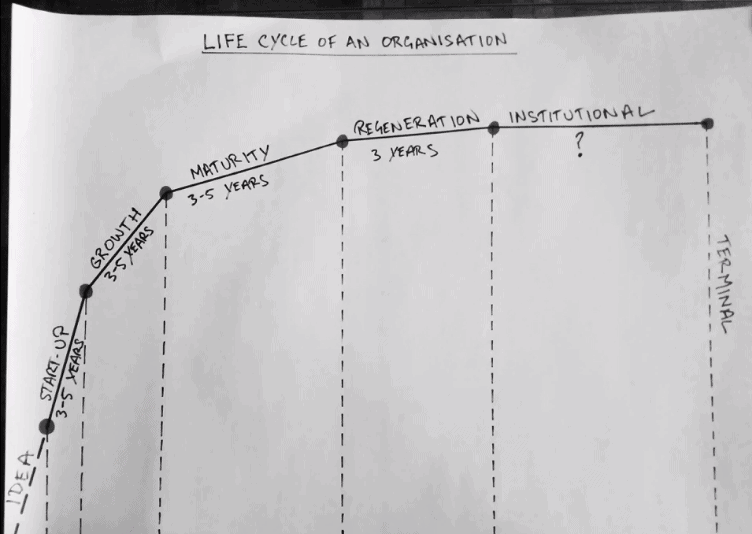 LIFE CYCLE OF AN ORGANISATION
IDEA
START-UP
3-5 YEARS
GROWTH
3-5 YEARS
MATURITY
3-5 YEARS
REGENERATION
3 YEARS
INSTITUTIONAL
?
TERMINAL